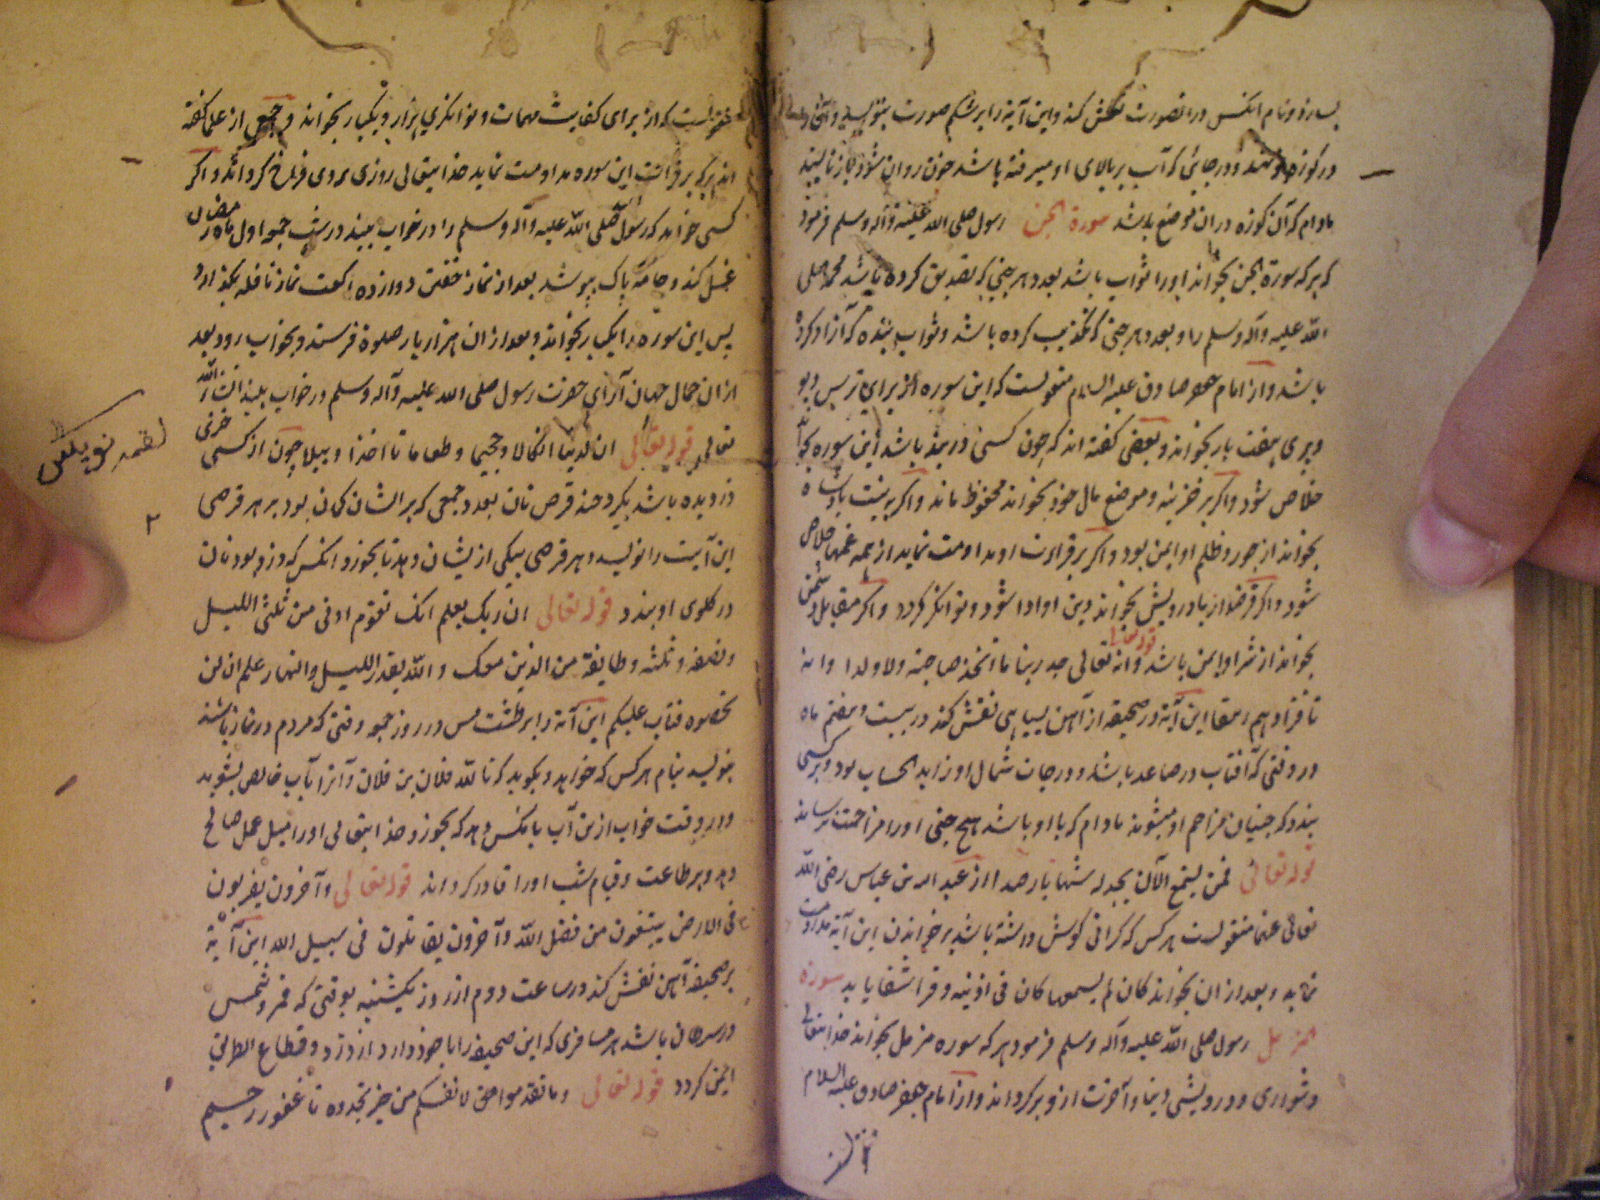 بسازد و نام آنکس در انصورت نقش کند و این آیة را بر شکم صورت بنویسد و
در کوزه نهند و در جائی که آب بر بالای او میرفته باشد چون روان شود باز نایستد
مادام که آن کوزه در ان موضع باشد سورة الجن رسول صلی الله علیه وآله وسلم فرمود
که هر که سورة الجن بخواند او را ثواب باشد بعدد هر جنی که تصدیق کرده باشد محمد صلی
الله علیه وآله وسلم را و بعدد هر جنی که تکذیب کرده باشد و ثواب بنده که آزاد کرده
باشد و از امام جعفر صادق علیه السلام منقولست که این سوره از برای ترس دیو
و پری هفت بار بخواند و بعضی کفته اند که چون کسی در بند باشد این سوره بخواند
خلاص شود و اکر بر خزینه و موضع مال خود بخواند محفوظ ماند و اکر به نیت پادشاه
بخواند از جور و ظلم او ایمن بود و اکر بر قراءت او مداومت نماید از همه غمها خلاص
شود و اکر قرضدار یا درویش بخواند دین او ادا شود و توانکر کردد و اکر مقابل دشمن
بخواند از شر او ایمن باشد قوله تعالی وانه تعالی جد ربنا ما اتخذ صاحبة ولا ولدا وانه
تا فزادوهم رهقا این آیة در صحیفه از آهن سیاهی نقش کند در بیست و هفتم ماه
در وقتی که آفتاب در صاعد باشد و درجات شمال او زاید الحساب بود و بر کسی
بندد که جنیان مزاحم او میشوند مادام که با او باشد هیچ جنی او را مزاحمت نرساند
قوله تعالی فمن یستمع الآن یجد له شهابا رصدا از عبد الله بن عباس رضی الله
تعالی عنهما منقولست هر کس که کرانی کوش داشته باشد بر خواندن این آیة مداومت
نماید و بعد از ان بخواند کان لم یسمعها کان فی اذنیه وقرا شفا یابد سورة
المزمل رسول صلی الله علیه وآله وسلم فرمود هر که سوره مزمل بخواند خدایتعالی
دشواری و درویشی دنیا و آخرت از و بر کرداند و از امام جعفر صادق علیه السلام
منقولست که از برای کفایت مهمات و توانکری هزار و یکبار بخواند و جمعی از علما کفته
اند هر که بر قرائت این سوره مداومت نماید خدایتعالی روزی بر وی فراخ کرداند و اکر
کسی خواهد که رسول صلی الله علیه وآله وسلم را در خواب بیند در شب جمعه اول ماه رمضان
غسل کند و جامه پاک بپوشد بعد از نماز خفتن دوازده رکعت نماز نافله بکذارد
پس این سوره را یکبار بخواند و بعد از ان هزار بار صلوة فرستد و بخواب رود بعد
از ان جمال جهان آرای حضرت رسول صلی الله علیه وآله وسلم در خواب بیند انشاء الله
تعالی قوله تعالی ان لدینا انکالا وجحیما وطعاما تا اخذا وبیلا چون از کسی چیزی
دزدیده باشد بکیرد چند قرص نان بعدد جمعی که بر ایشان کمان بود بر هر قرصی
این آیت را نویسد و هر قرصی بیکی از یشان دهد تا بخورد انکس که دزد بود نان
در کلوی او بندد قوله تعالی ان ربک یعلم انک تقوم ادنی من ثلثی اللیل
ونصفه وثلثه وطایفة من الذین معک والله یقدر اللیل والنهار علم ان لن
تحصوه فتاب علیکم این آیة را بر طشت مس در روز جمعه وقتی که مردم در نماز باشند
بنویسد بنام هر کس که خواهد و بکوید که نالله فلان بن فلان و آنرا بآب خالص بشوید
و در وقت خواب از ین آب بانکس دهد که بخورد خدایتعالی او را میل عمل صالح
دهد و بر طاعت و قیام شب او را قادر کرداند قوله تعالی وآخرون یضربون
فی الارض یبتغون من فضل الله وآخرون یقاتلون فی سبیل الله این آیة
بر صحیفه آهن نقش کند در ساعت دوم از روز یکشنبه بوقتی که قمر و شمس
در سرطان باشد هر مسافری که این صحیفه را با خود دارد از دزد و قطاع الطریق
ایمن کردد قوله تعالی وما تقدموا لانفسکم من خیر تجدوه تا غفور رحیم